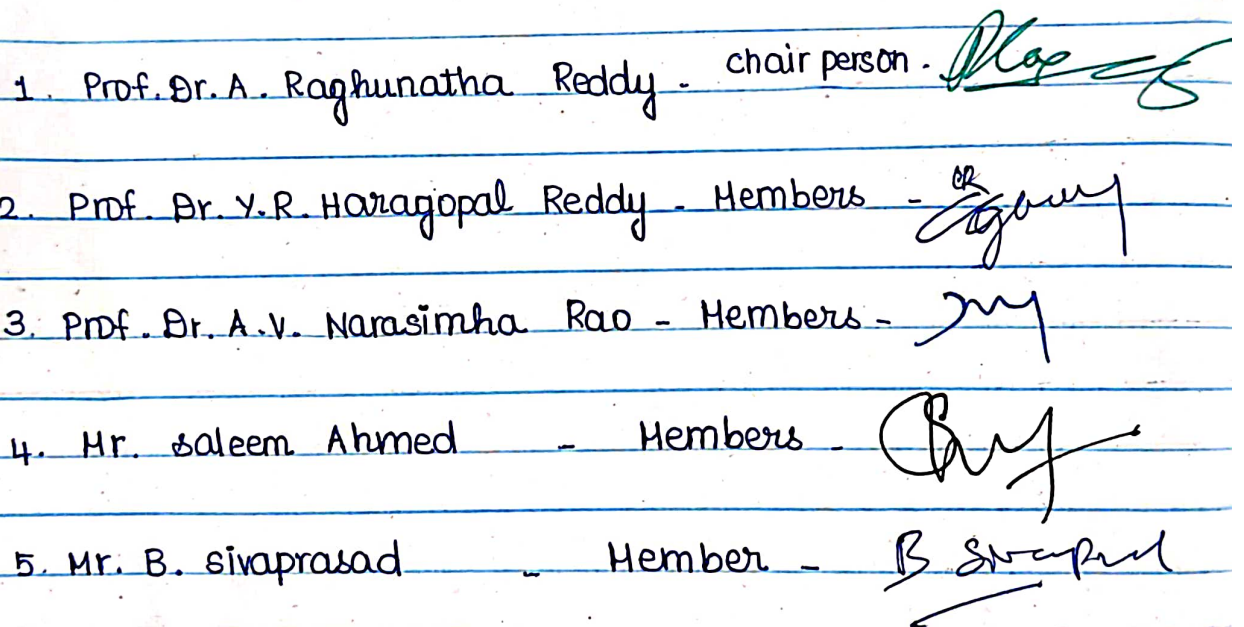 1. Prof. Dr. A. Raghunatha Reddy - chair person.
2. Prof. Dr. Y.R. Haragopal Reddy - Members -
3. Prof. Dr. A.V. Narasimha Rao - Members -
4. Mr. saleem Ahmed - Members -
5. Mr. B. sivaprasad - Member - B